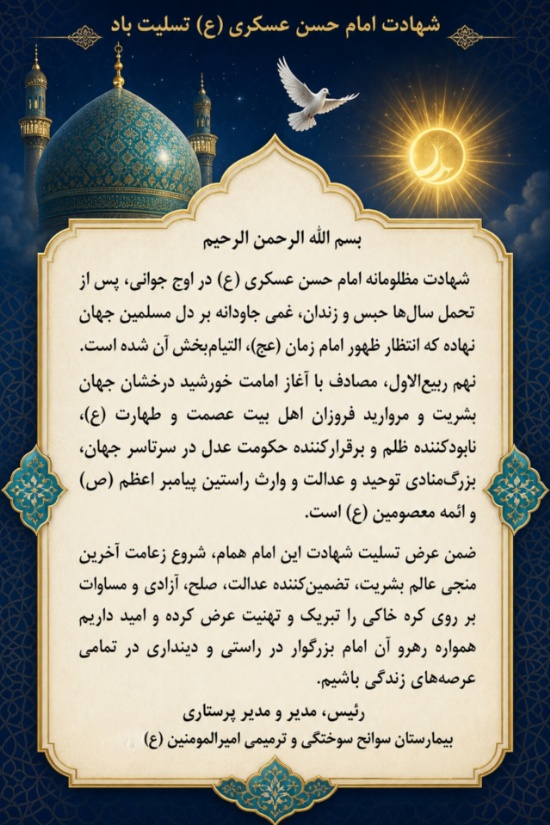 شهادت امام حسن عسکری (ع) تسلیت باد
بسم الله الرحمن الرحیم
شهادت مظلومانه امام حسن عسکری (ع) در اوج جوانی، پس از
تحمل سال‌ها حبس و زندان، غمی جاودانه بر دل مسلمین جهان
نهاده که انتظار ظهور امام زمان (عج)، التیام‌بخش آن شده است.
نهم ربیع‌الاول، مصادف با آغاز امامت خورشید درخشان جهان
بشریت و مروارید فروزان اهل بیت عصمت و طهارت (ع)،
نابودکننده ظلم و برقرارکننده حکومت عدل در سرتاسر جهان،
بزرگ‌منادی توحید و عدالت و وارث راستین پیامبر اعظم (ص)
و ائمه معصومین (ع) است.
ضمن عرض تسلیت شهادت این امام همام، شروع زعامت آخرین
منجی عالم بشریت، تضمین‌کننده عدالت، صلح، آزادی و مساوات
بر روی کره خاکی را تبریک و تهنیت عرض کرده و امید داریم
همواره رهرو آن امام بزرگوار در راستی و دینداری در تمامی
عرصه‌های زندگی باشیم.
رئیس، مدیر و مدیر پرستاری
بیمارستان سوانح سوختگی و ترمیمی امیرالمومنین (ع)